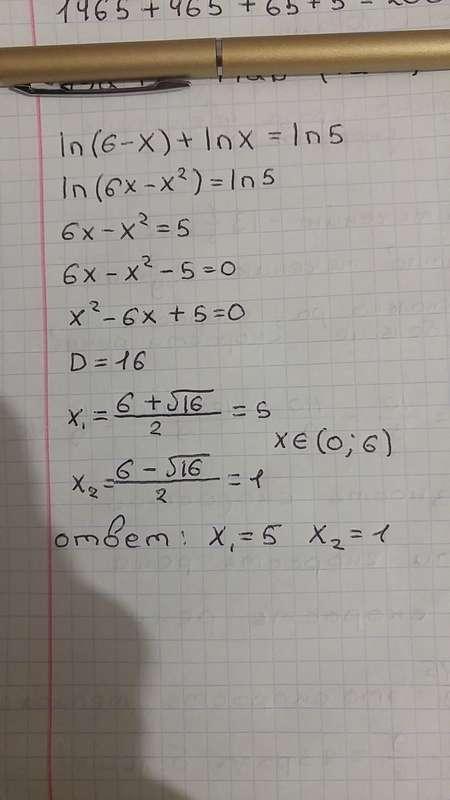 1465 + 465 + 65 + 5 =
ln(6-x) + lnx = ln5
ln(6x-x²) = ln5
6x - x² = 5
6x - x² - 5 = 0
x² - 6x + 5 = 0
D = 16
x₁ = (6 + √16)/2 = 5
x ∈ (0; 6)
x₂ = (6 - √16)/2 = 1
ответ: x₁ = 5 x₂ = 1